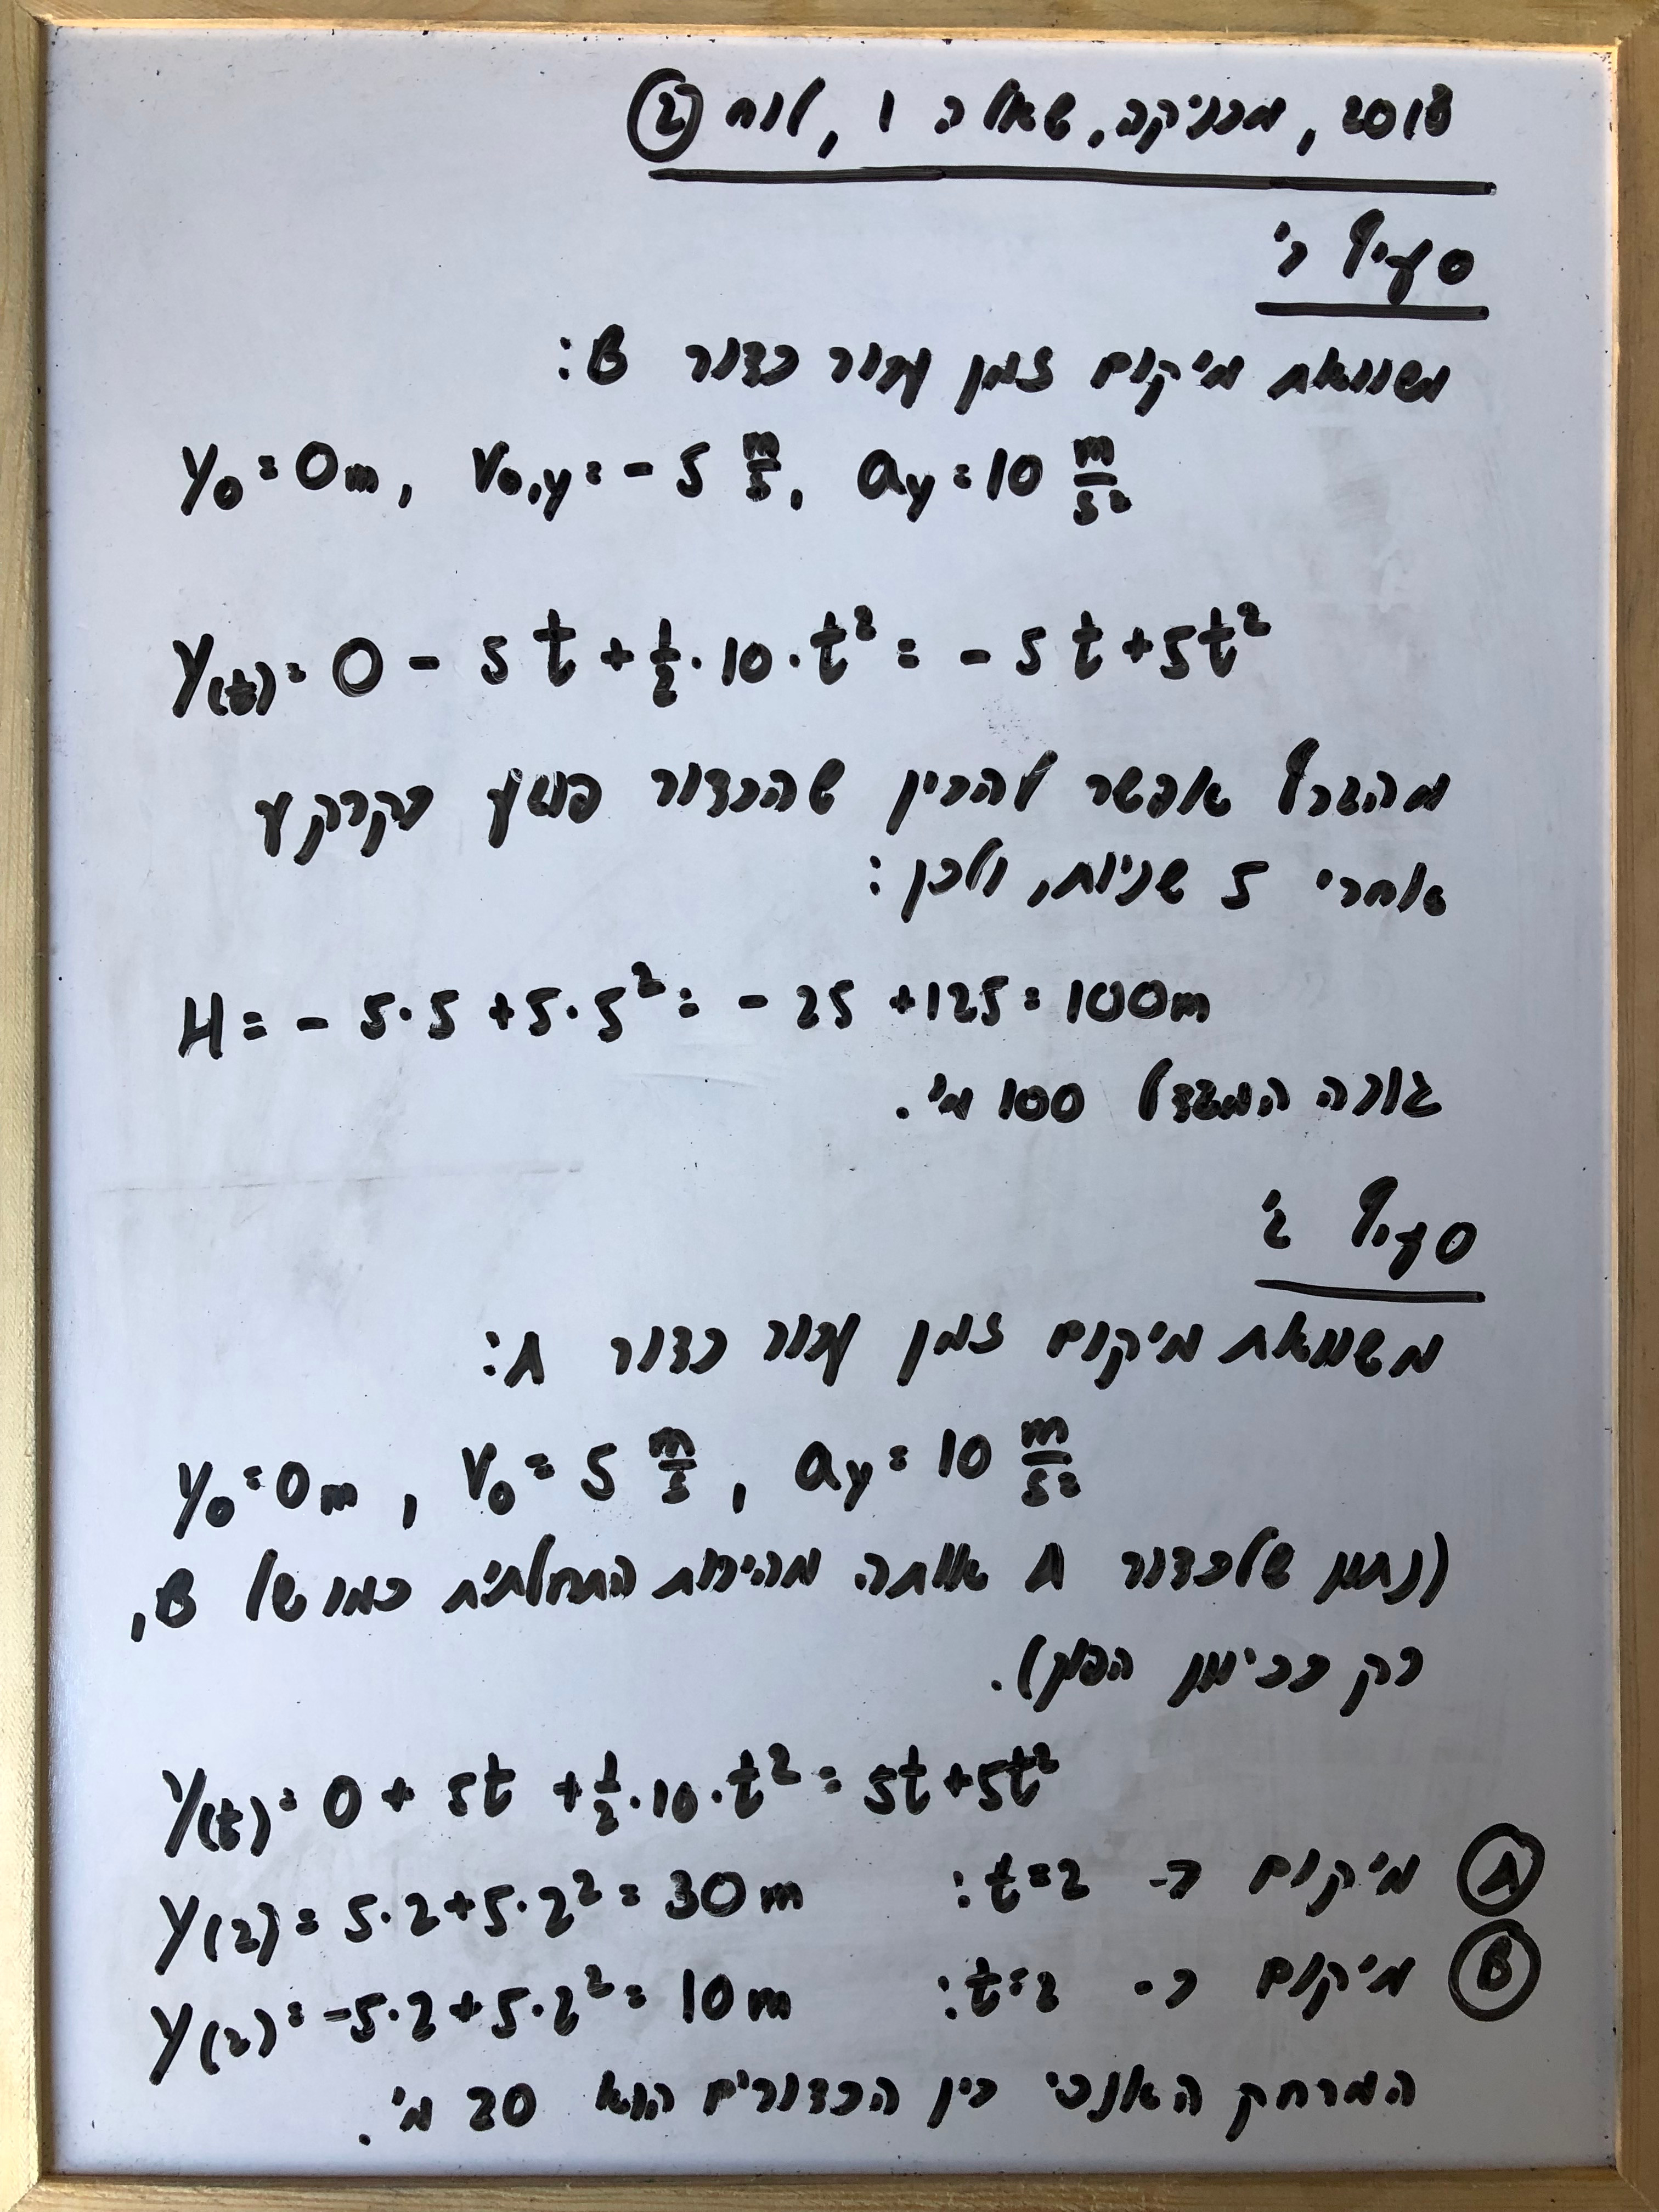 2018, מכניקה, שאלה 1, לוח ②
סעיף ב'
משוואת מיקום זמן עבור כדור B:
y₀ = 0m, v₀,y = -5 m/s, ay = 10 m/s²
y(t) = 0 - 5t + 1/2 · 10 · t² = -5t + 5t²
מהגרף אפשר להבין שהכדור פוגע בקרקע
אחרי 5 שניות, ולכן:
H = -5·5 + 5·5² = -25 + 125 = 100m
גובה המגדל 100 מ'.
סעיף ג'
משוואת מיקום זמן עבור כדור A:
y₀ = 0m, v₀ = 5 m/s, ay = 10 m/s²
(נתון שלכדור A אותה מהירות התחלתית כמו של B,
רק בכיוון הפוך).
y(t) = 0 + 5t + 1/2 · 10 · t² = 5t + 5t²
Ⓐ מיקום ב- t=2: y(2) = 5·2 + 5·2² = 30m
Ⓑ מיקום ב- t=2: y(2) = -5·2 + 5·2² = 10m
המרחק האנכי בין הכדורים הוא 20 מ'.